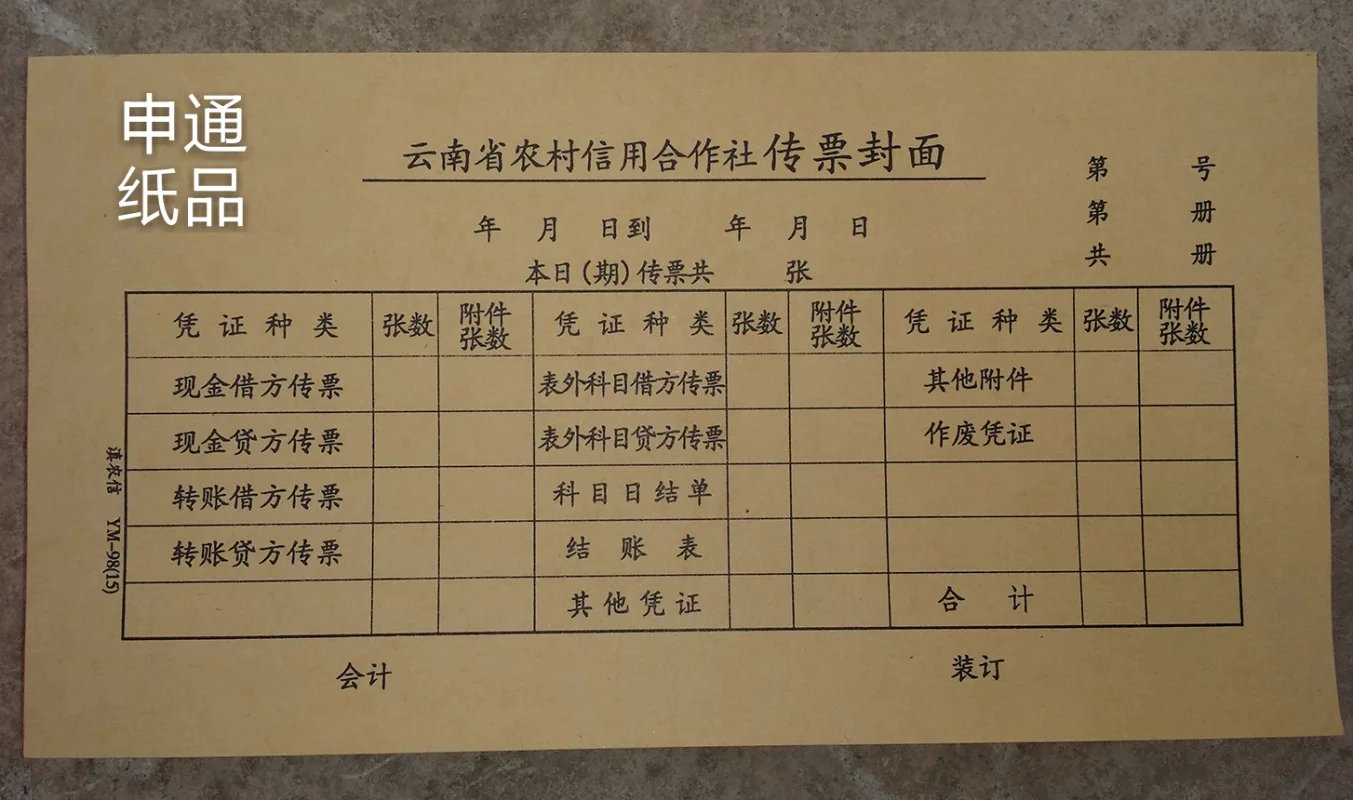 申通
纸品
云南省农村信用合作社传票封面
第 号
第 册
共 册
年 月 日到 年 月 日
本日(期)传票共 张
凭证种类 张数 附件张数 凭证种类 张数 附件张数 凭证种类 张数 附件张数
现金借方传票 表外科目借方传票 其他附件
现金贷方传票 表外科目贷方传票 作废凭证
转账借方传票 科目日结单
转账贷方传票 结账表
其他凭证 合计
会计 装订
滇农信 YM-98(15)